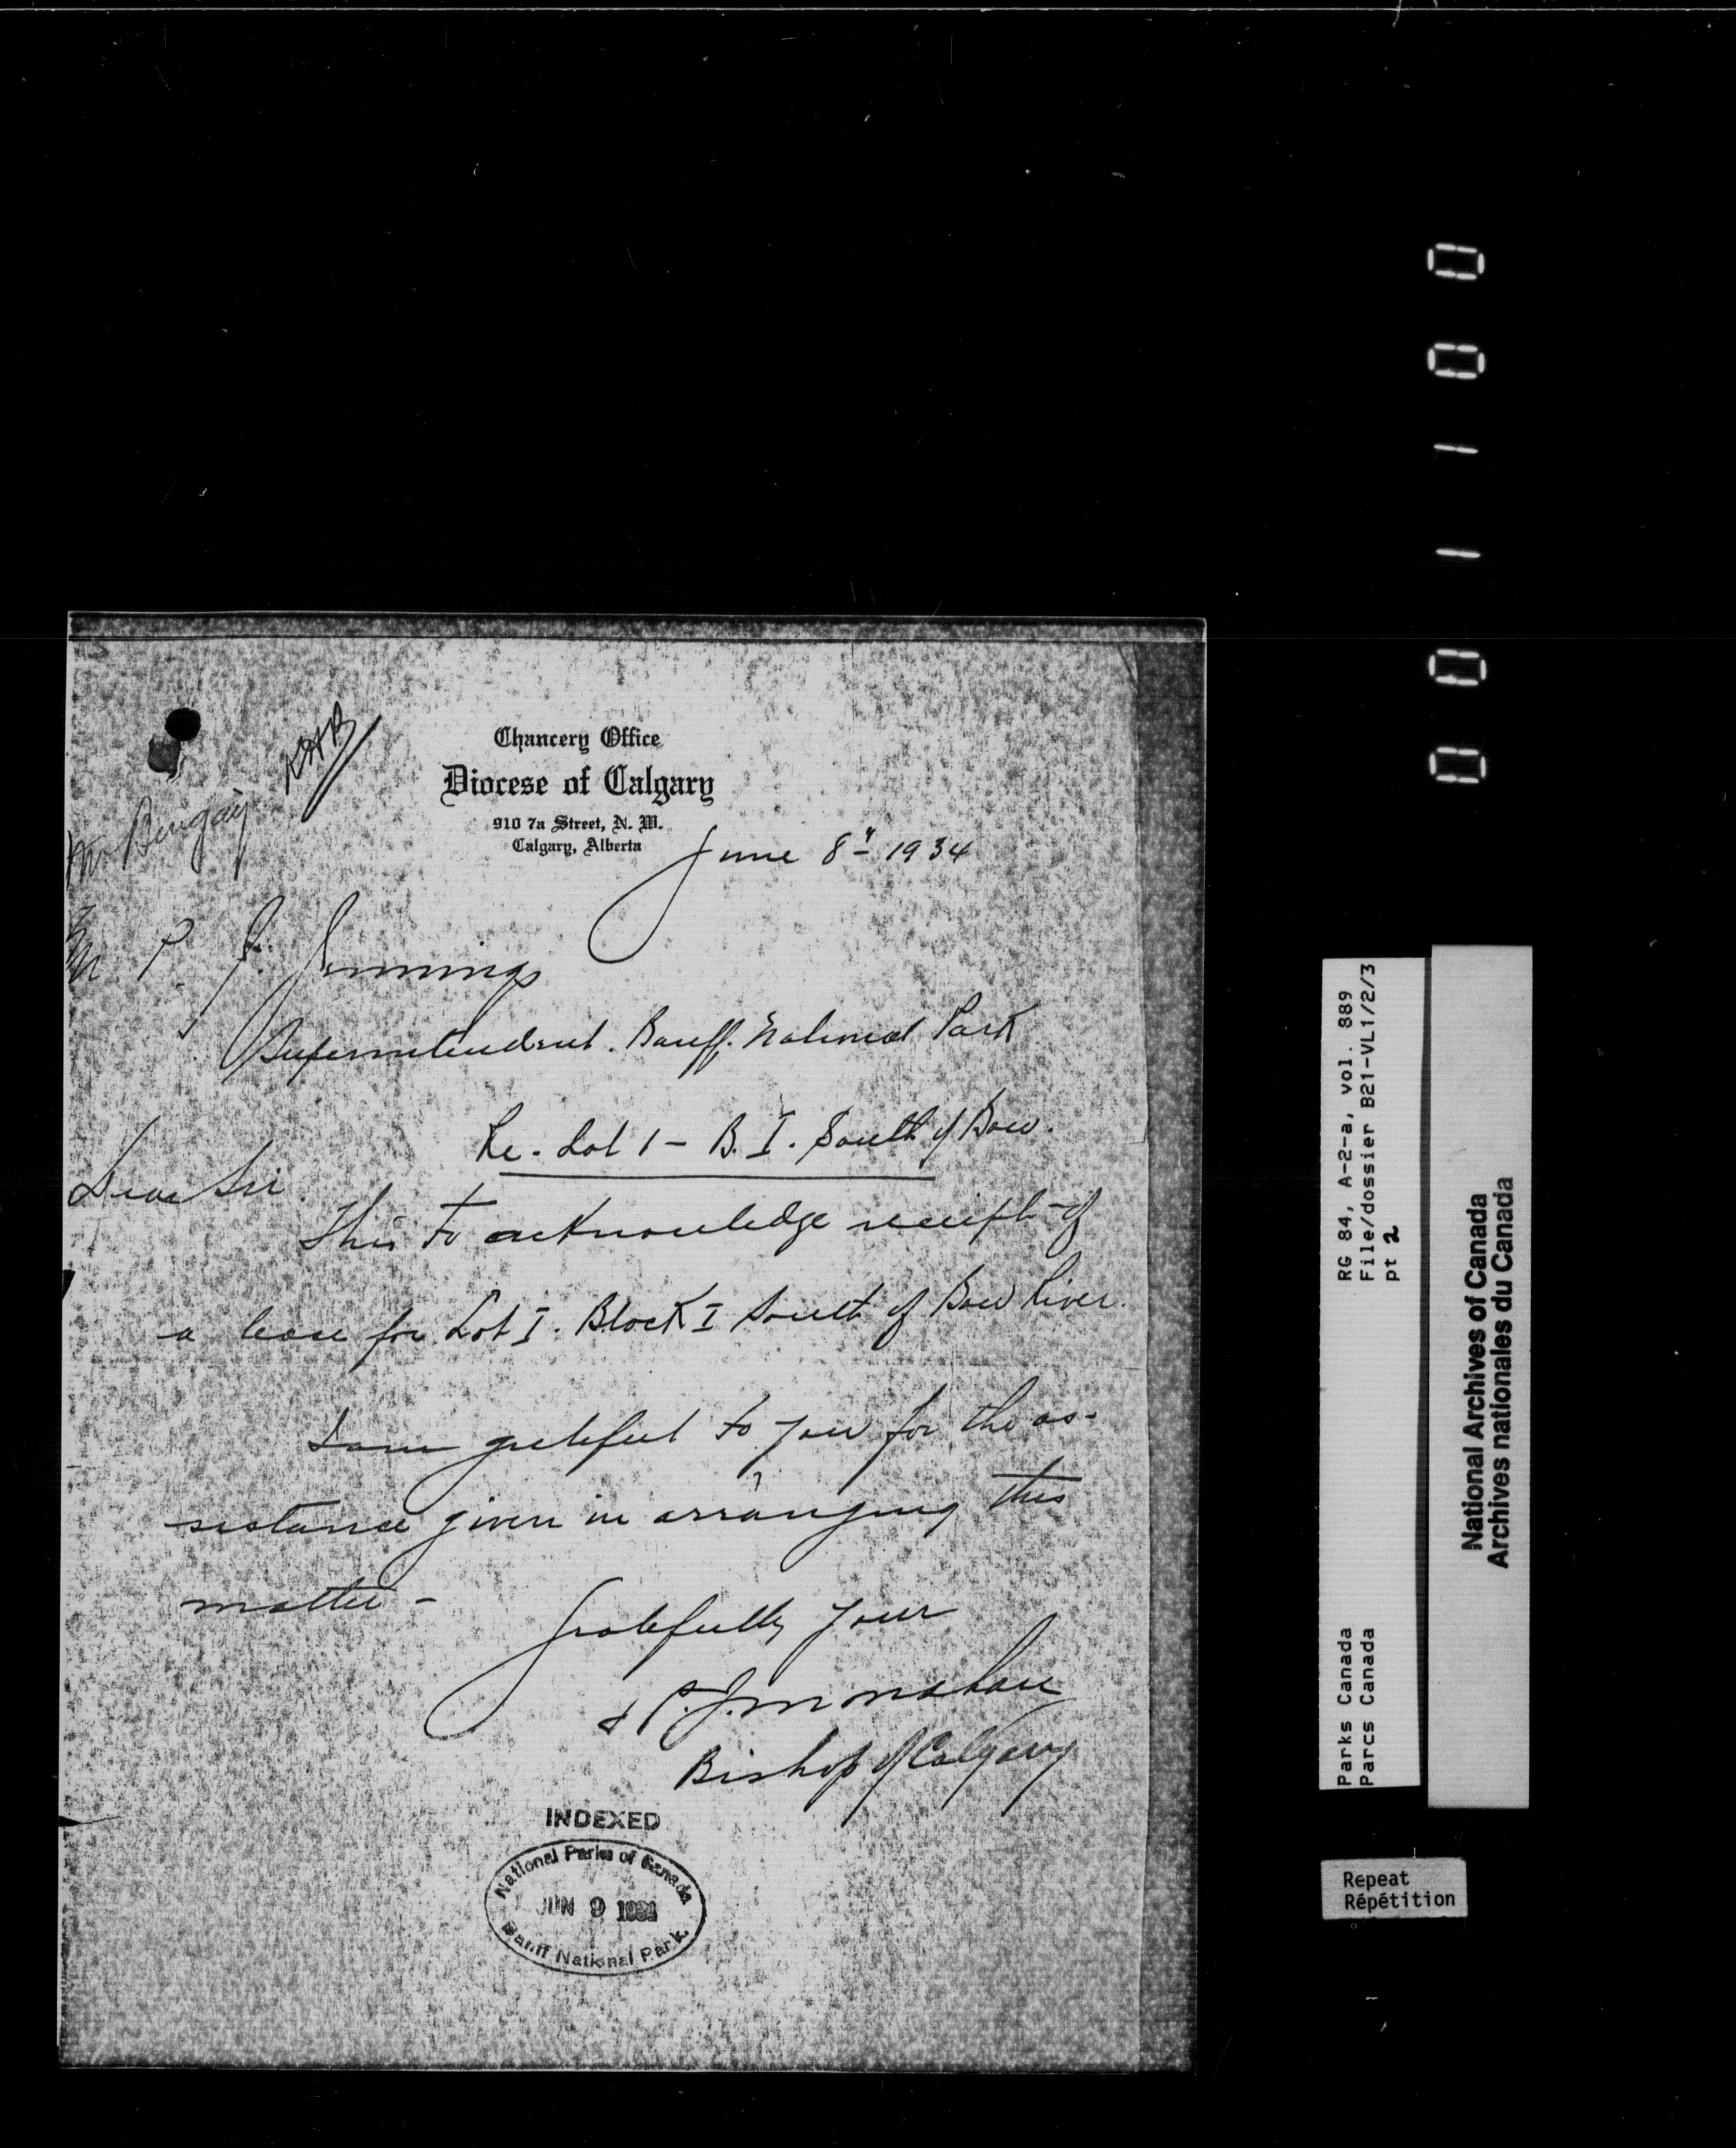 Chancery Office
Diocese of Calgary
910 7a Street, N. W.
Calgary, Alberta
June 8th 1934
Mr P. J. Jennings
Superintendent. Banff. National Park
Re. Lot 1 - B. I. South of Bow.
Dear Sir.
This to acknowledge receipt of
a lease for Lot I. Block I South of Bow River.
I am grateful to you for the as-
sistance given in arranging this
matter -
Gratefully your
+ P. J. Monahan
Bishop of Calgary
INDEXED
National Parks of Canada
JUN 9 1934
Banff National Park
001100
RG 84, A-2-a, vol. 889
File/dossier B21-VL1/2/3
pt 2
Parks Canada
Parcs Canada
National Archives of Canada
Archives nationales du Canada
Repeat
Répétition